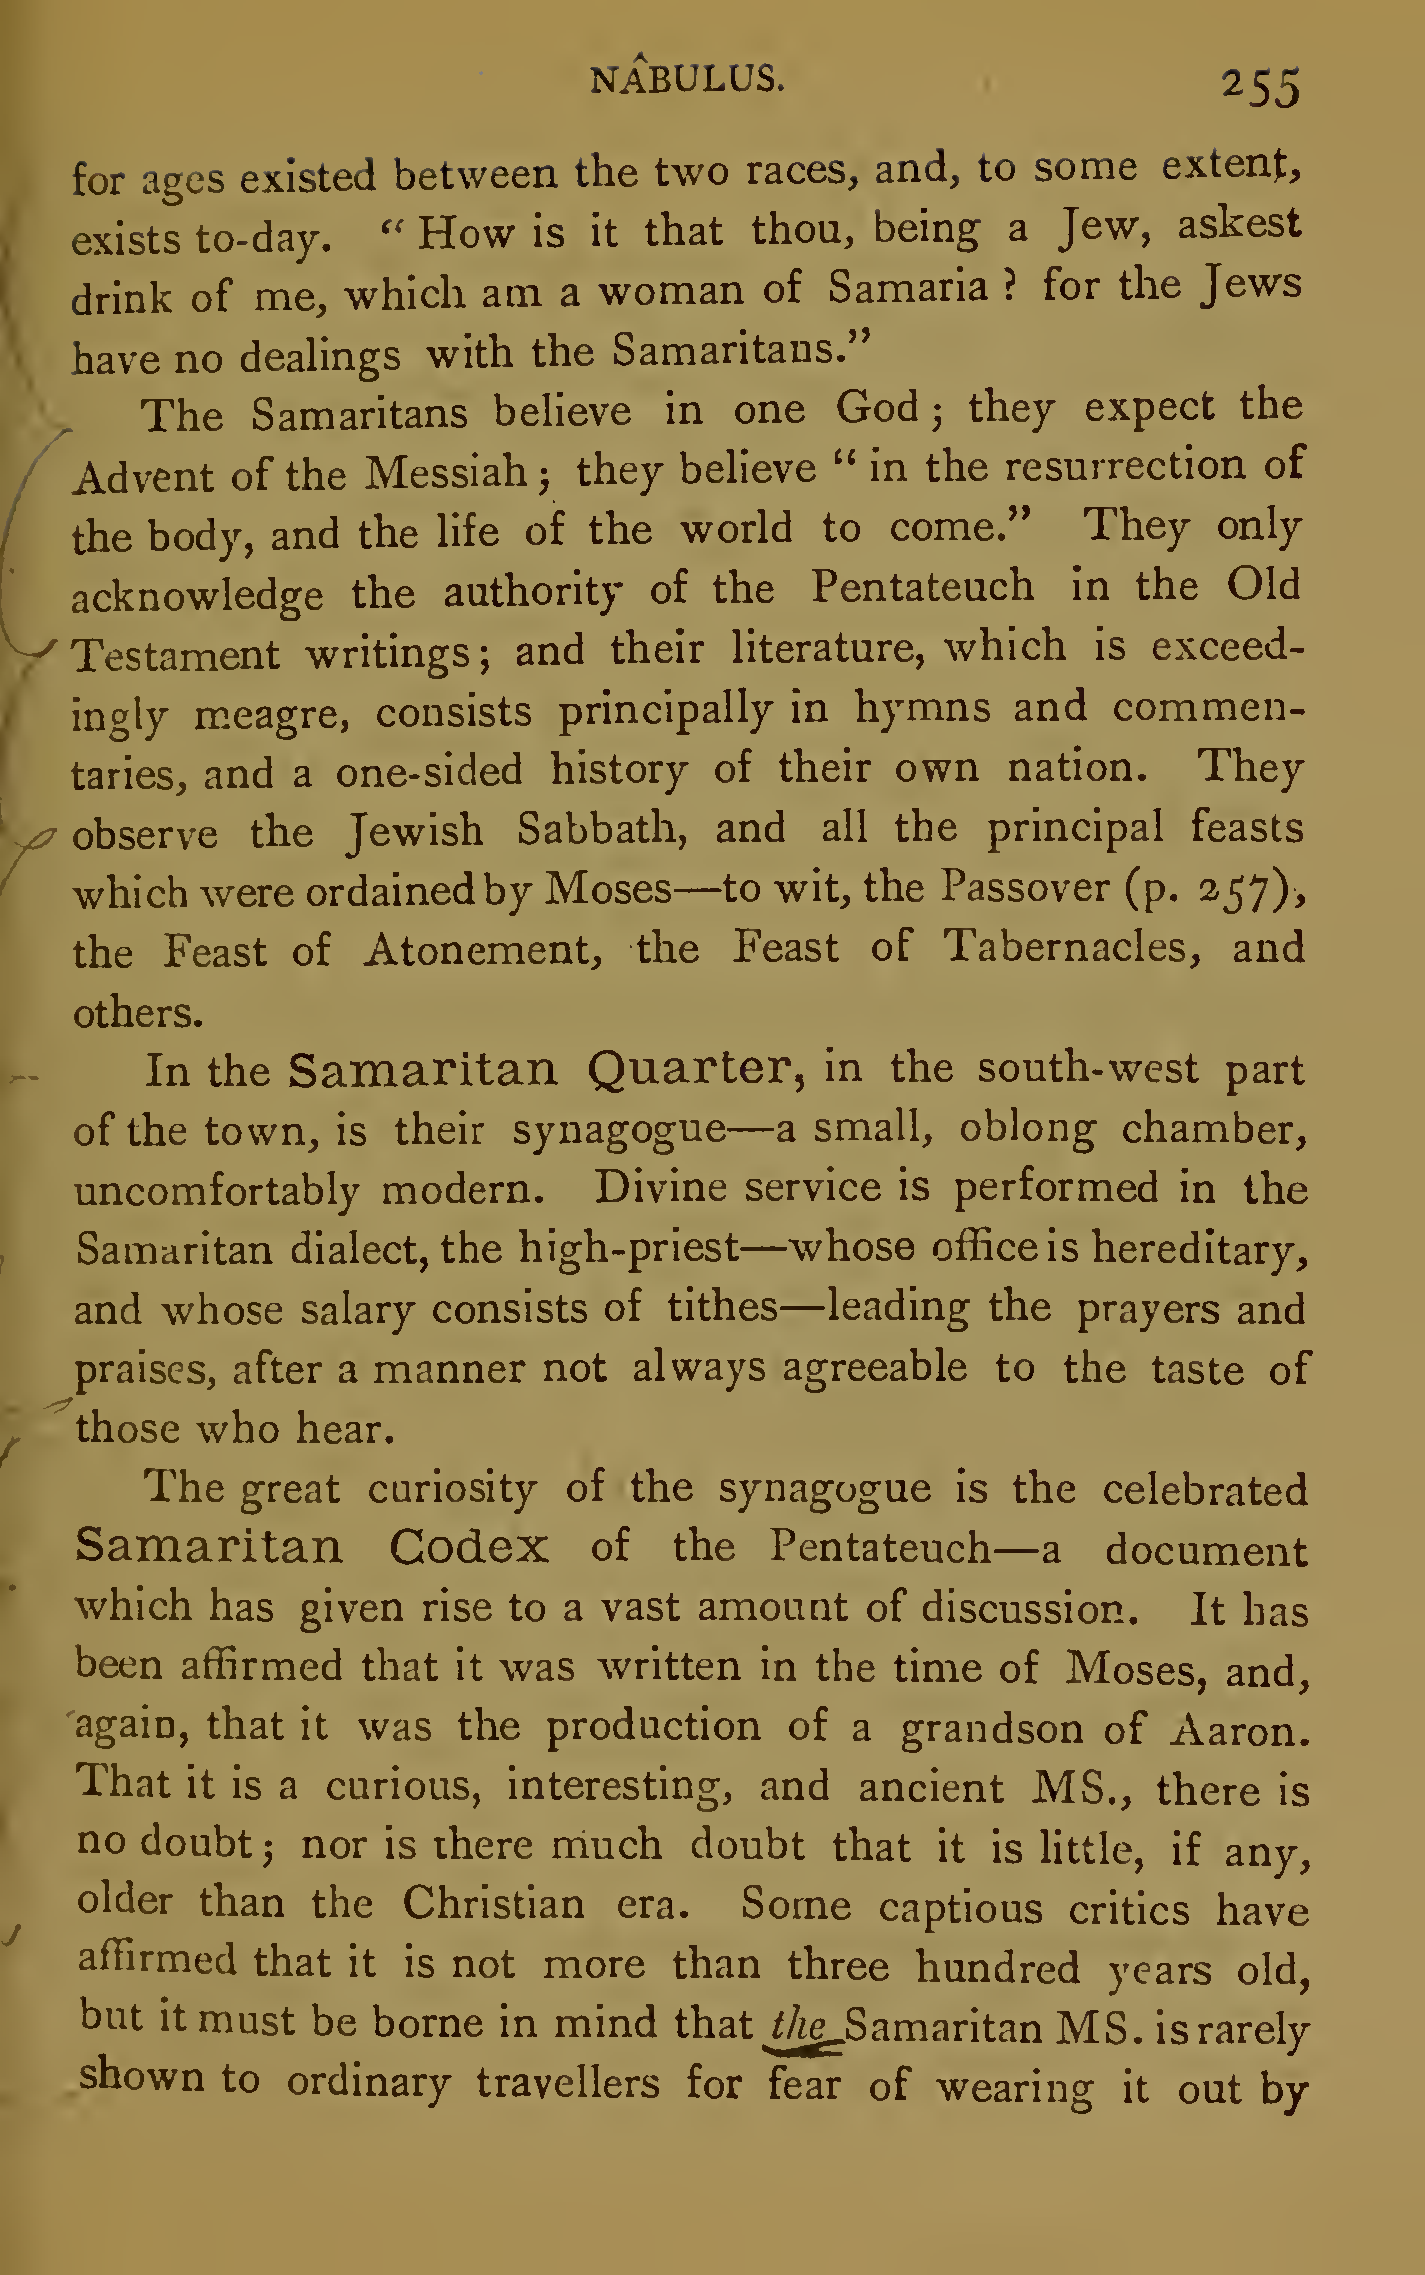 NÂBULUS.
255
for ages existed between the two races, and, to some extent,
exists to-day. “ How is it that thou, being a Jew, askest
drink of me, which am a woman of Samaria ? for the Jews
have no dealings with the Samaritans.”
The Samaritans believe in one God ; they expect the
Advent of the Messiah ; they believe “ in the resurrection of
the body, and the life of the world to come.” They only
acknowledge the authority of the Pentateuch in the Old
Testament writings ; and their literature, which is exceed-
ingly meagre, consists principally in hymns and commen-
taries, and a one-sided history of their own nation. They
observe the Jewish Sabbath, and all the principal feasts
which were ordained by Moses—to wit, the Passover (p. 257),
the Feast of Atonement, the Feast of Tabernacles, and
others.
In the Samaritan Quarter, in the south-west part
of the town, is their synagogue—a small, oblong chamber,
uncomfortably modern. Divine service is performed in the
Samaritan dialect, the high-priest—whose office is hereditary,
and whose salary consists of tithes—leading the prayers and
praises, after a manner not always agreeable to the taste of
those who hear.
The great curiosity of the synagogue is the celebrated
Samaritan Codex of the Pentateuch—a document
which has given rise to a vast amount of discussion. It has
been affirmed that it was written in the time of Moses, and,
again, that it was the production of a grandson of Aaron.
That it is a curious, interesting, and ancient MS., there is
no doubt ; nor is there much doubt that it is little, if any,
older than the Christian era. Some captious critics have
affirmed that it is not more than three hundred years old,
but it must be borne in mind that the Samaritan MS. is rarely
shown to ordinary travellers for fear of wearing it out by